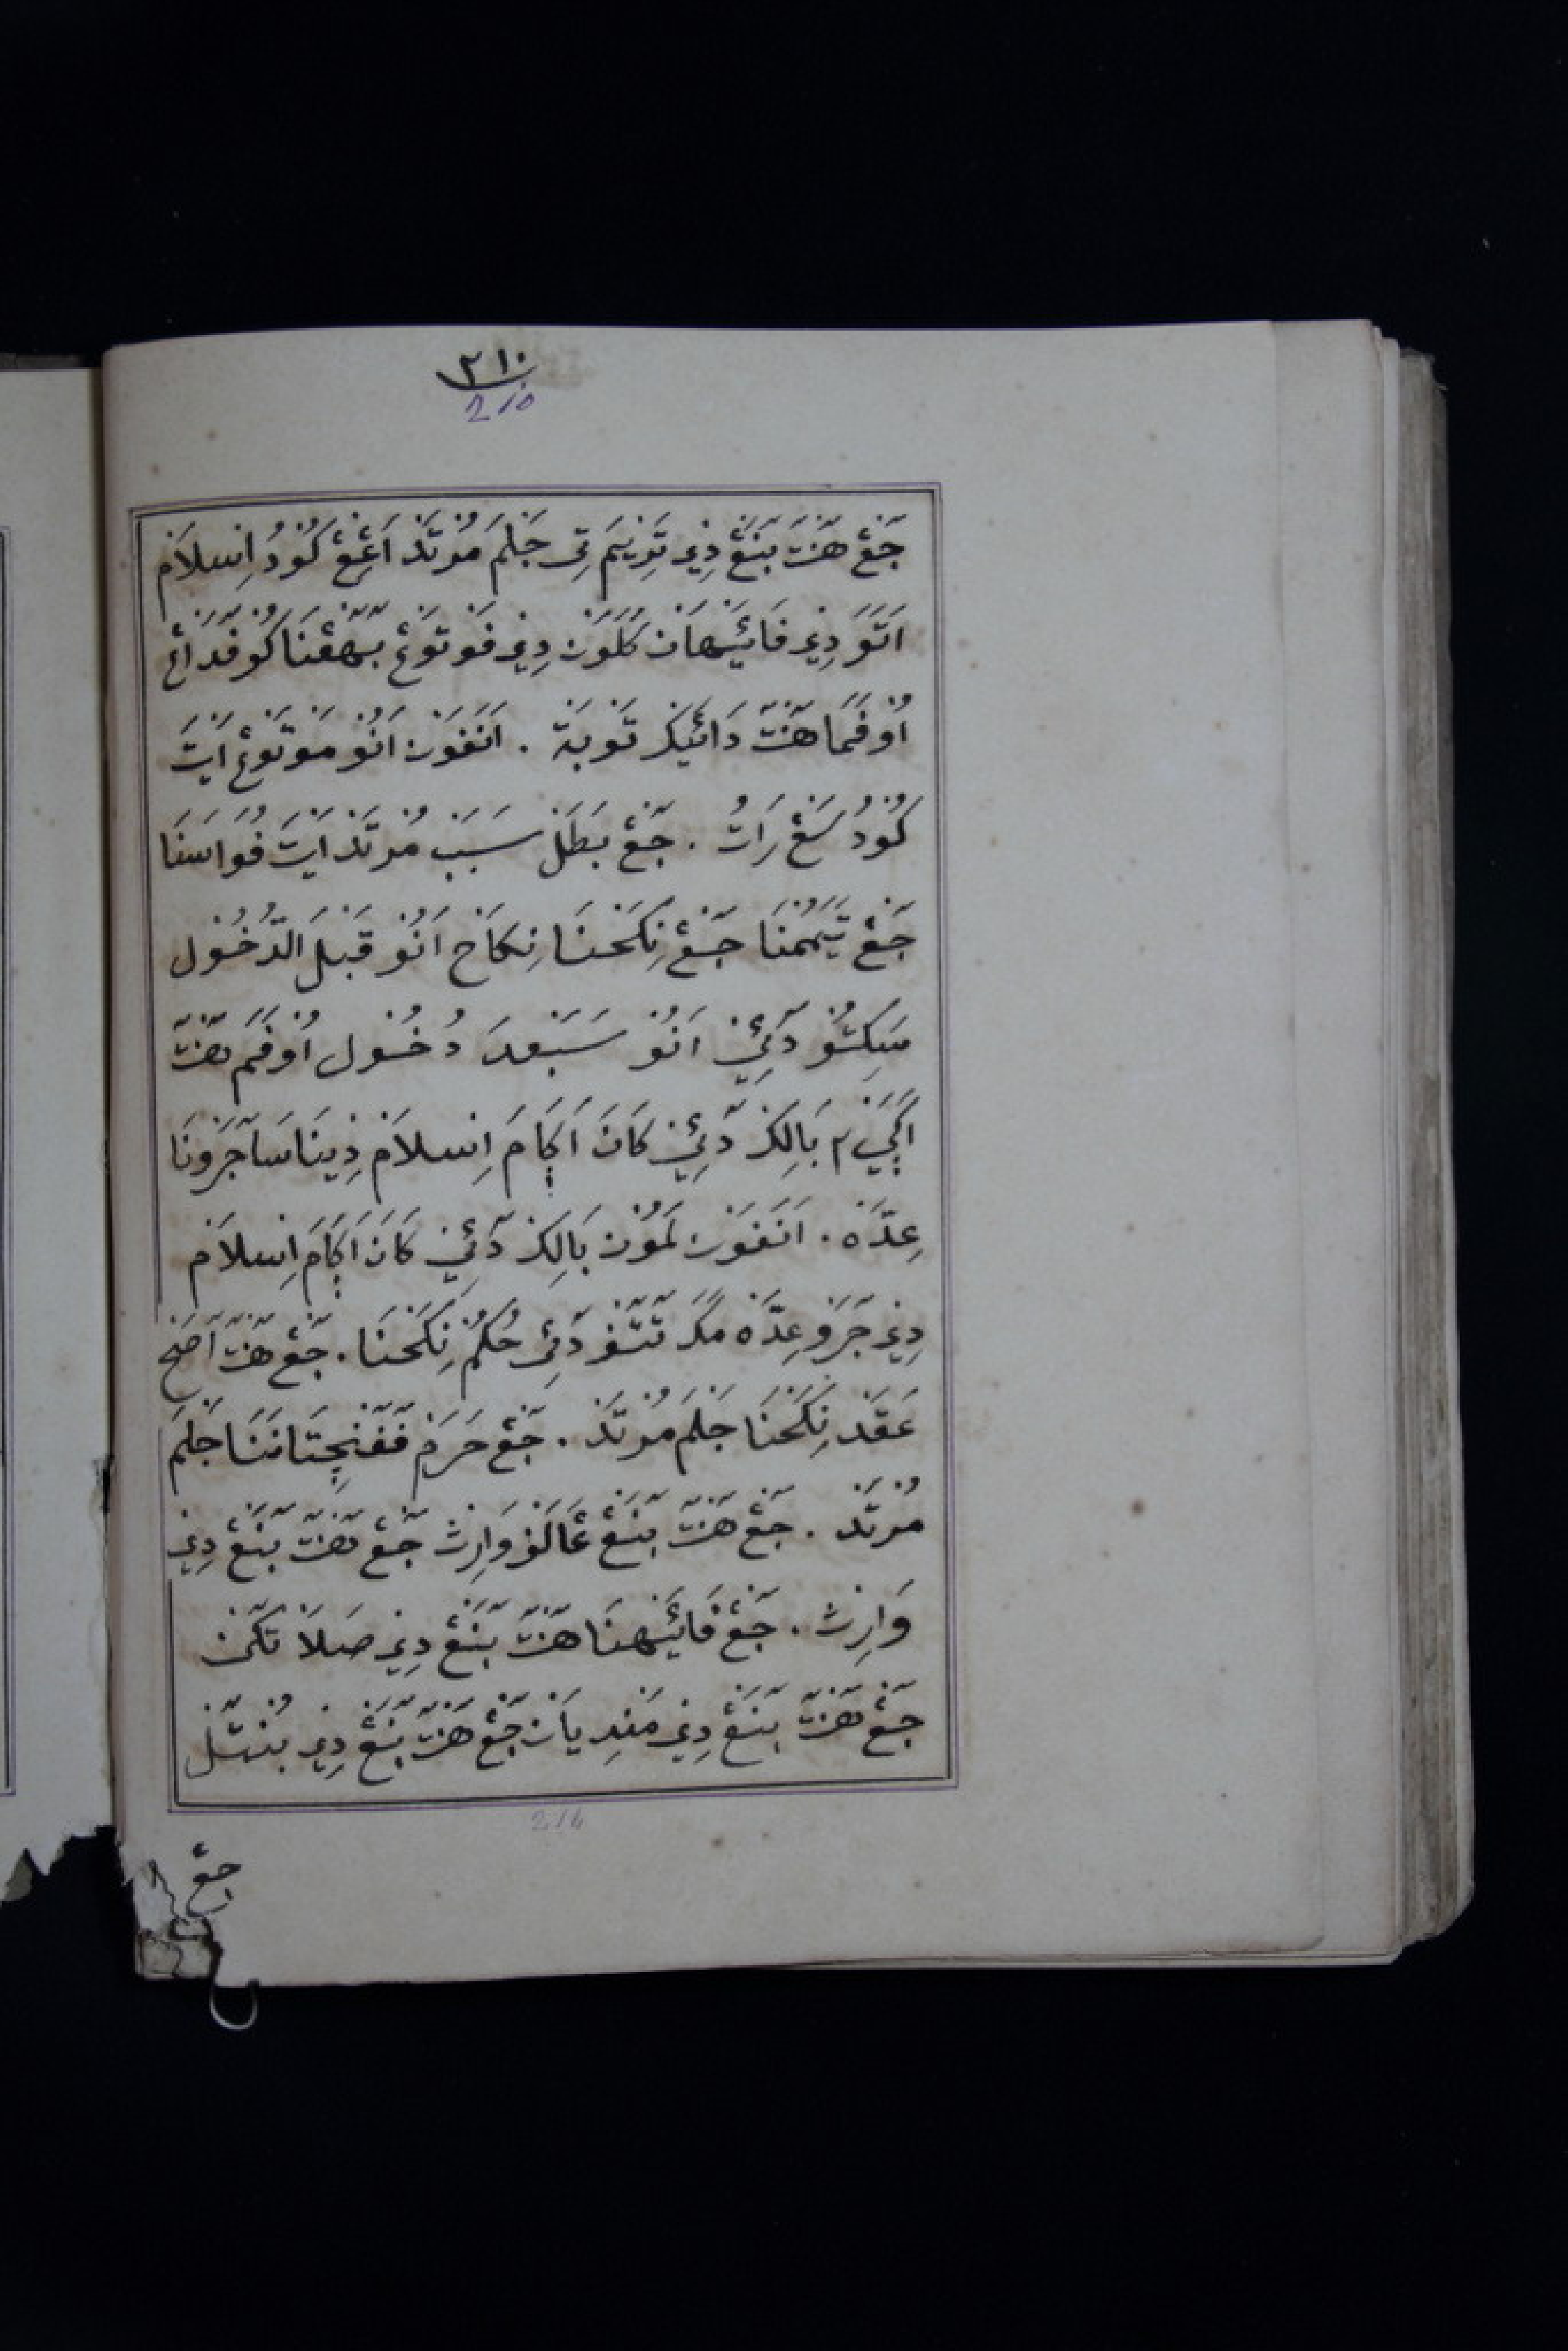 ٢١٠
210
جَڠْ هَنْتَ بَنَڠْ دِيْ تَرِيْمَ تِيْ جَلْمَ مُرْتَدْ اَڠِڠْ كُوْدُ اِسْلَامْ
اَتَوَ دِيْ فَائَيْهَانْ كَلَوَنْ دِيْ فَوْتَوْڠْ بَهڠْنَا كُوْ فَدَاڠْ
اُوْفَمَا هَنْتَ دَائَيْكَرْ تَوْبَةْ . اَنَفَوْنْ اَنُوْ مَوْتَوْڠْ اَيْتَ
كُوْدُ سَڠْ رَاتُ . جَڠْ بَطَلْ سَبَبْ مُرْتَدْ اَيْتَ فُوَاسَنَا
جَڠْ تَيَمُّمْنَا جَڠْ نِكَحْنَا نِكَاحْ اَنُوْ قَبْلَ الدُّخُوْل
سَكِتُوْ دَئِيْ اَنُوْ سَبَعْدَ دُخُوْل اُوْفَمَ هَنْتَ
اَݢَيْ ٢ بَالِكْ دَئِيْ كَانَ اَݢَامَ اِسْلَامْ دِيْنَا سَاجَرَوْنَا
عِدَّهْ . اَنَفَوْنْ لَمُوْنْ بَالِكْ دَئِيْ كَانَ اَݢَامَ اِسْلَامْ
دِيْ جَرَوْ عِدَّهْ مَكَ تَتَفْ دَئِيْ حُكُمْ نِكَحْنَا . جَڠْ هَنْتَ اَصَحْ
عَقَدْ نِكَحْنَا جَلْمَ مُرْتَدْ . جَڠْ حَرَمْ فَفَنْچِتَانَنَا جَلْمَ
مُرْتَدْ . جَڠْ هَنْتَ بَنَڠْ ڠَالَفْ وَارِثْ جَڠْ هَنْتَ بَنَڠْ دِيْ
وَارِثْ . جَڠْ فَائَيْهنَا هَنْتَ بَنَڠْ دِيْ صَلَاتَكَنْ
جَڠْ هَنْتَ بَنَڠْ دِيْ مَنْدِ يَانْ جَڠْ هَنْتَ بَنَڠْ دِيْ بُنْتَلْ
جڠ